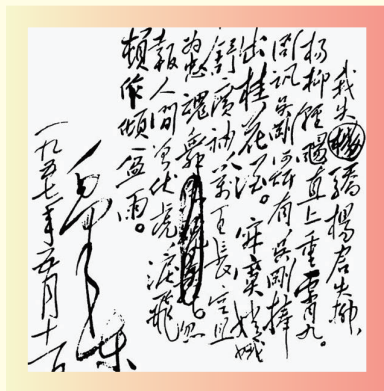 我失驕楊君失柳,
楊柳輕颺直上重霄九。
問訊吳剛何所有,吳剛捧
出桂花酒。寂寞嫦娥
舒廣袖,萬里長空且
為忠魂舞。忽
報人間曾伏虎,淚飛
頓作傾盆雨。
毛澤東
一九五七年五月十一日